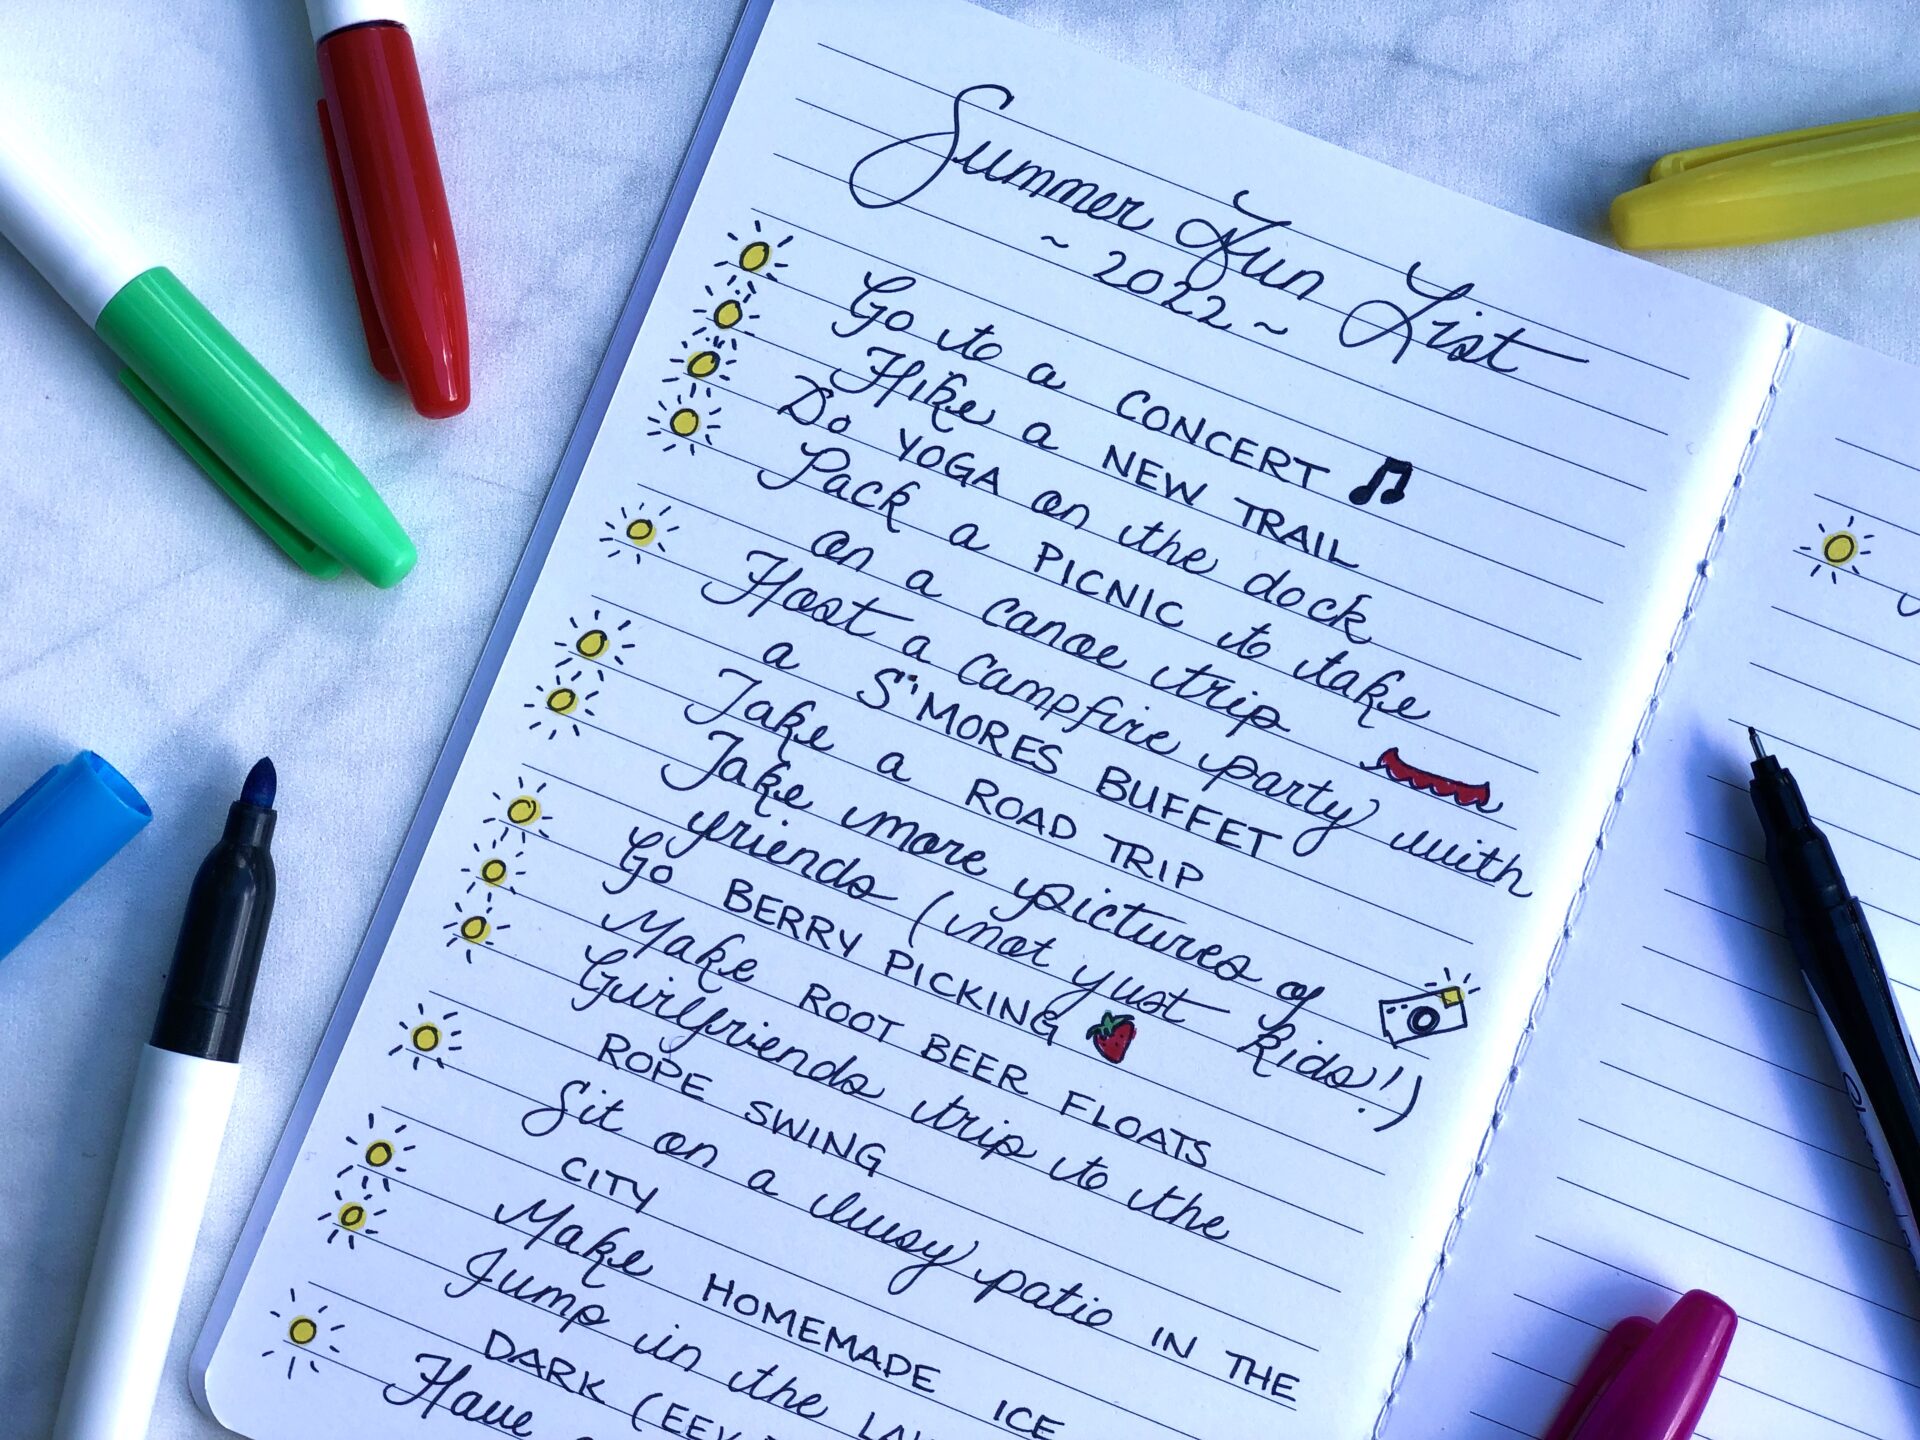 Summer Fun List
~ 2022 ~
Go to a CONCERT
Hike a NEW TRAIL
Do YOGA on the dock
Pack a PICNIC to take
on a canoe trip
Host a campfire party with
a S'MORES BUFFET
Take a ROAD TRIP
Take more pictures of
friends (not just kids!)
Go BERRY PICKING
Make ROOT BEER FLOATS
Girlfriends trip to the
ROPE SWING
Sit on a busy patio IN THE
CITY
Make HOMEMADE ICE
Jump in the
DARK (EEK
Have